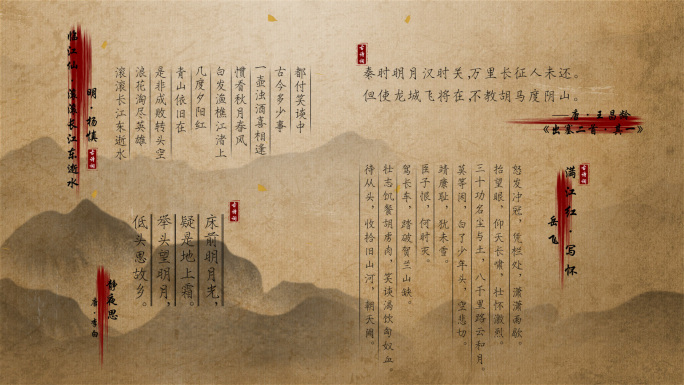 临江仙 滚滚长江东逝水
明·杨慎
古诗词
滚滚长江东逝水
浪花淘尽英雄
是非成败转头空
青山依旧在
几度夕阳红
白发渔樵江渚上
惯看秋月春风
一壶浊酒喜相逢
古今多少事
都付笑谈中
古诗词
秦时明月汉时关,万里长征人未还。
但使龙城飞将在,不教胡马度阴山。
——唐·王昌龄
《出塞二首·其一》
古诗词
满江红·写怀
岳飞
怒发冲冠，凭栏处，潇潇雨歇。
抬望眼，仰天长啸，壮怀激烈。
三十功名尘与土，八千里路云和月。
莫等闲，白了少年头，空悲切。
靖康耻，犹未雪。
臣子恨，何时灭。
驾长车，踏破贺兰山缺。
壮志饥餐胡虏肉，笑谈渴饮匈奴血。
待从头，收拾旧山河，朝天阙。
古诗词
床前明月光，
疑是地上霜。
举头望明月，
低头思故乡。
静夜思
唐·李白